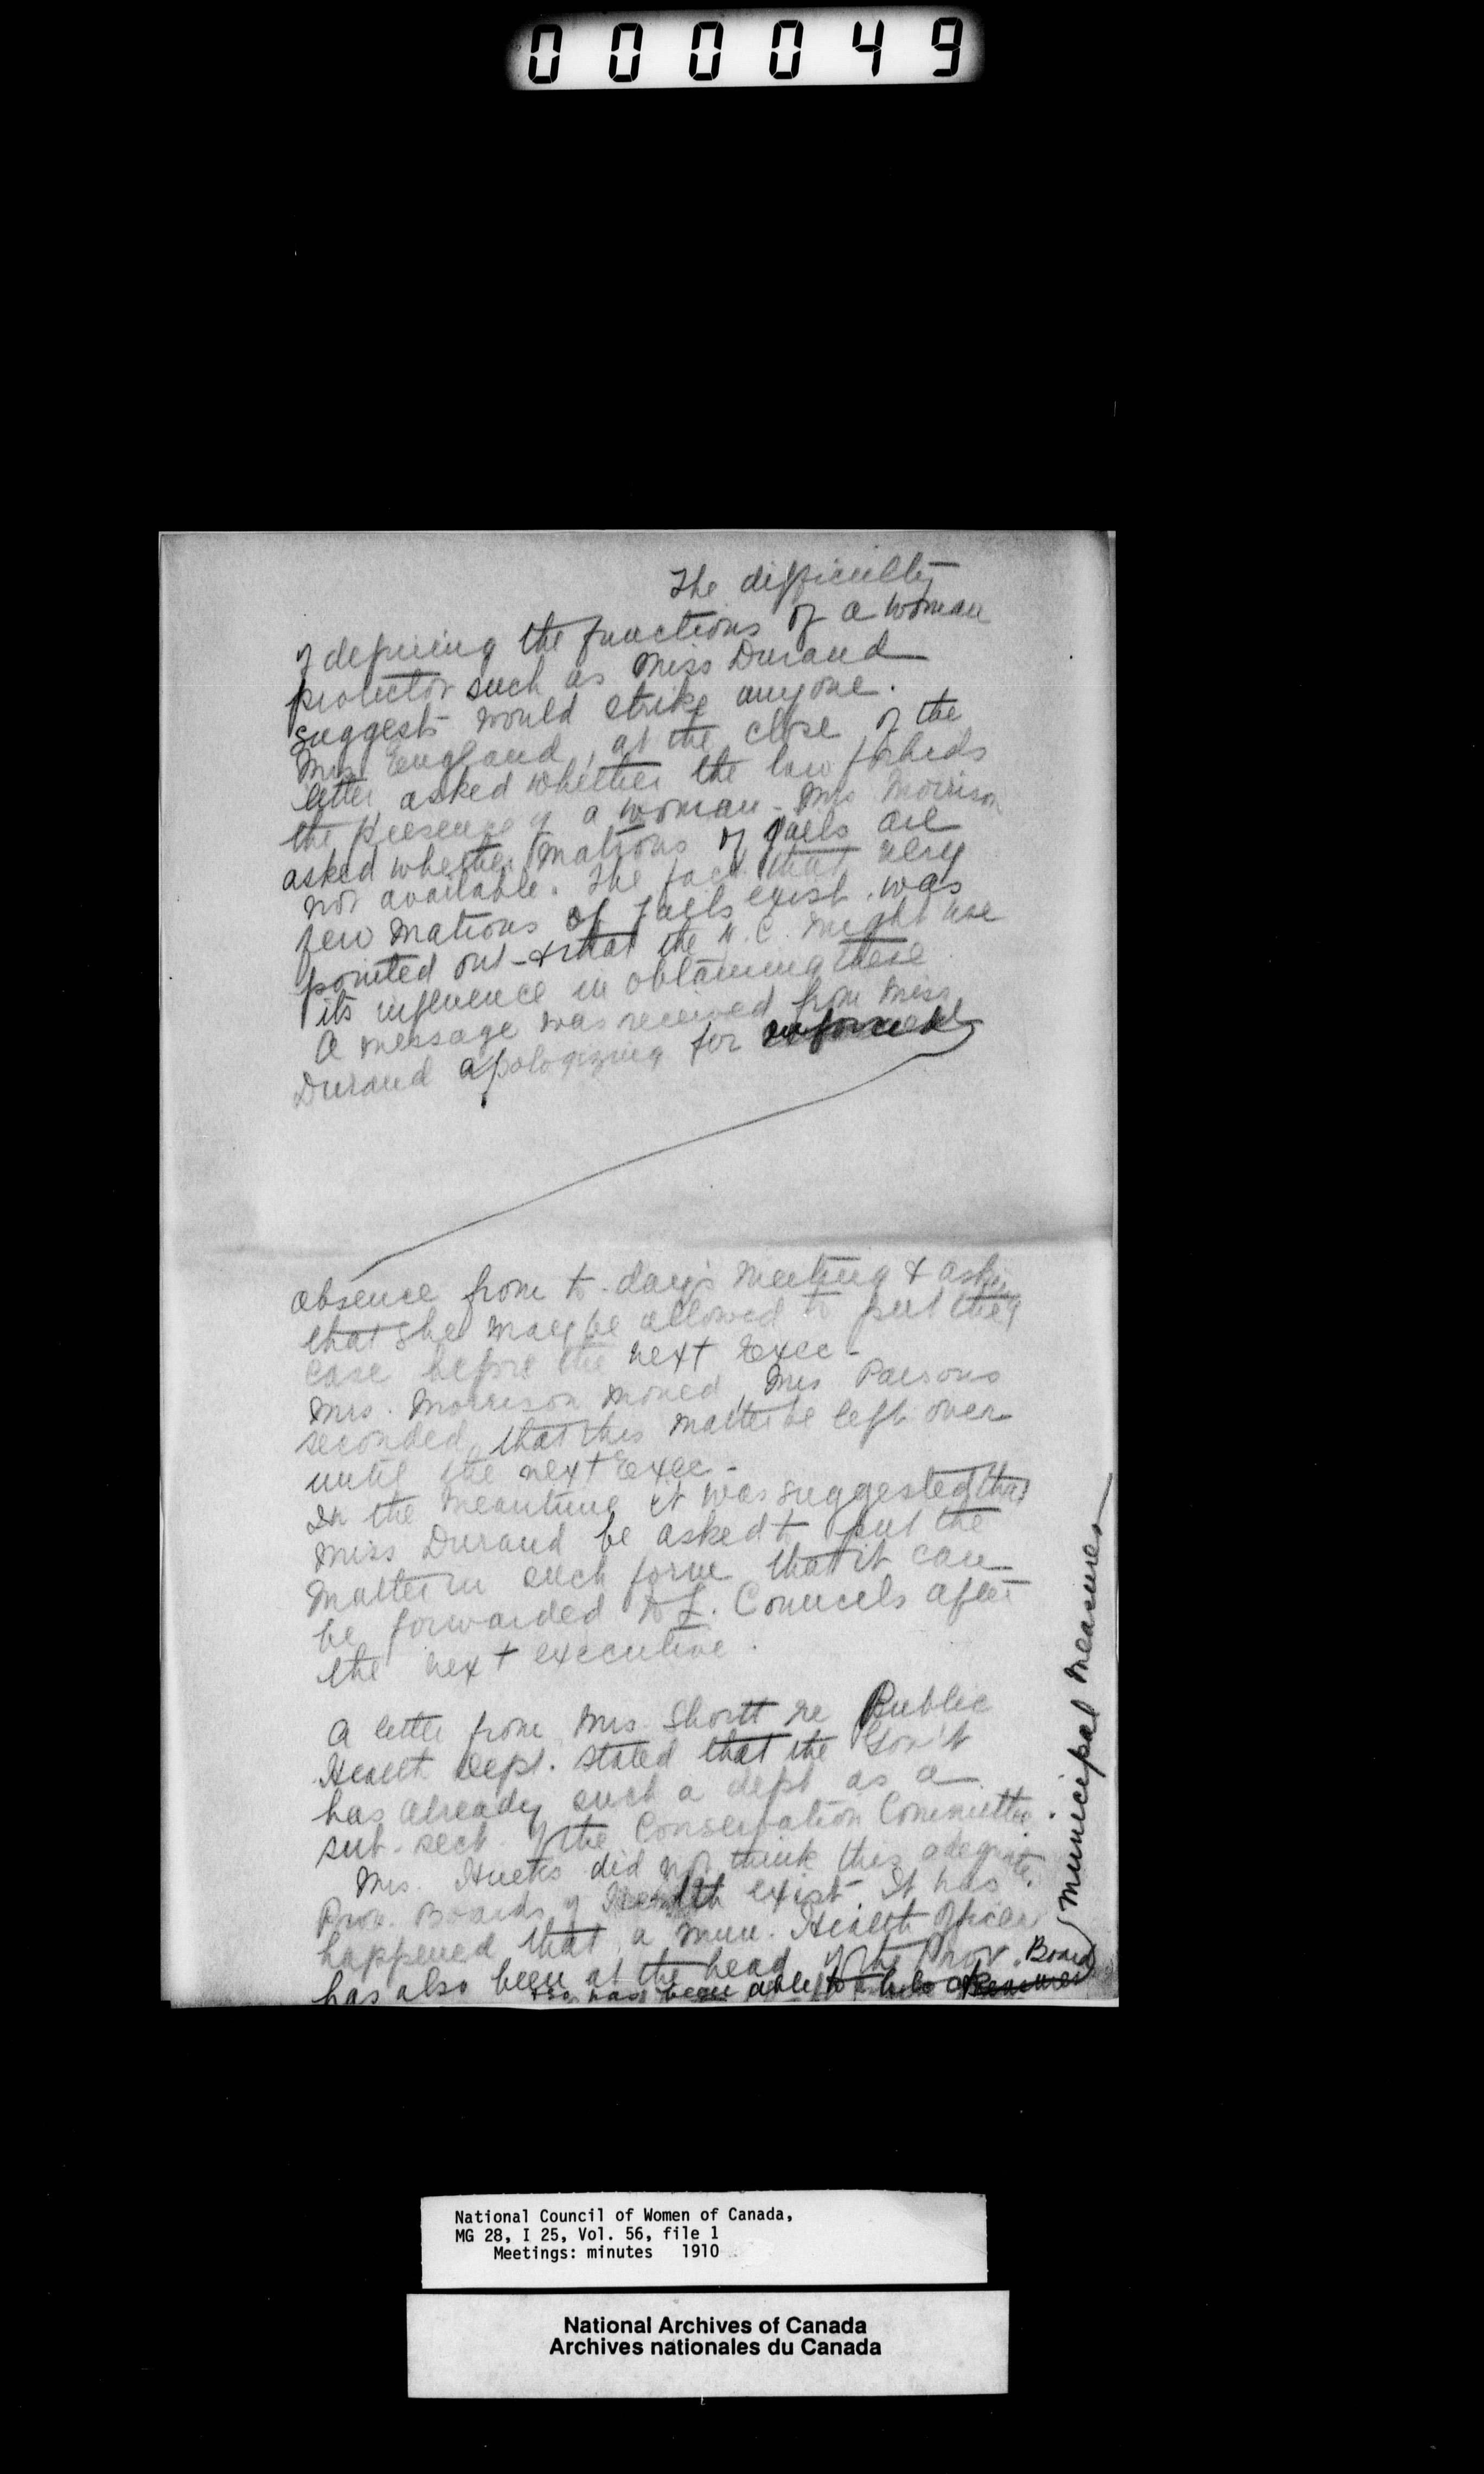 000049
The difficulty
of defining the functions of a woman
protector such as Miss Durand
suggests would strike anyone.
Mrs England, at the close of the
letter asked whether the law forbids
the presence of a woman - Mrs Morrison
asked whether matrons of jails are
not available. The fact that very
few matrons of jails exist was
pointed out - & that the N.C. might use
its influence in obtaining these
A message was received from Miss
Durand apologizing for
absence from to-day's meeting & asking
that she may be allowed to put the
case before the next Exec -
Mrs. Morrison moved, Mrs Parsons
seconded, that this matter be left over
until the next Exec -
In the meantime it was suggested that
Miss Durand be asked to put the
matter in such form that it can
be forwarded to L. Councils after
the next executive.
A letter from Mrs. Shortt re Public
Health Dept. stated that the Gov't
has already such a dept as a
sub-sect. of the Conservation Committee.
Mrs. did not think this adequate.
Prov. Boards of Health exist. It has
happened that a mun. Health Officer
has also been at the head of the Prov. Board
has been able to
municipal measures
National Council of Women of Canada,
MG 28, I 25, Vol. 56, file 1
Meetings: minutes 1910
National Archives of Canada
Archives nationales du Canada